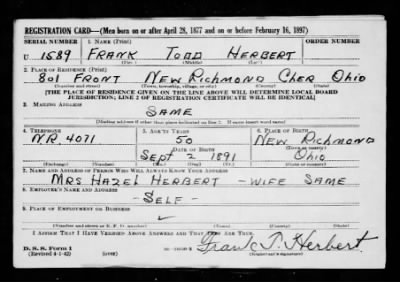 REGISTRATION CARD—(Men born on or after April 28, 1877 and on or before February 16, 1897)
SERIAL NUMBER 1. NAME (Print)
U 1589 FRANK TODD HERBERT
(First) (Middle) (Last)
2. PLACE OF RESIDENCE (Print)
801 FRONT NEW RICHMOND CLER OHIO
(Number and street) (Town, township, village, or city) (County) (State)
[THE PLACE OF RESIDENCE GIVEN ON THE LINE ABOVE WILL DETERMINE LOCAL BOARD
JURISDICTION; LINE 2 OF REGISTRATION CERTIFICATE WILL BE IDENTICAL]
3. MAILING ADDRESS
SAME
(Mailing address if other than place indicated on line 2. If same insert word same)
4. TELEPHONE 5. AGE IN YEARS 6. PLACE OF BIRTH
N.R. 4071 50 NEW RICHMOND
DATE OF BIRTH (Town or county)
SEPT 2 1891 OHIO
(Exchange) (Number) (Mo.) (Day) (Yr.) (State or country)
7. NAME AND ADDRESS OF PERSON WHO WILL ALWAYS KNOW YOUR ADDRESS
MRS HAZEL HERBERT - WIFE SAME
8. EMPLOYER'S NAME AND ADDRESS
- SELF -
9. PLACE OF EMPLOYMENT OR BUSINESS
(Number and street or R. F. D. number) (Town) (County) (State)
I AFFIRM THAT I HAVE VERIFIED ABOVE ANSWERS AND THAT THEY ARE TRUE.
D. S. S. Form 1
(Revised 4-1-42) (over)
Frank T. Herbert
(Registrant's signature)